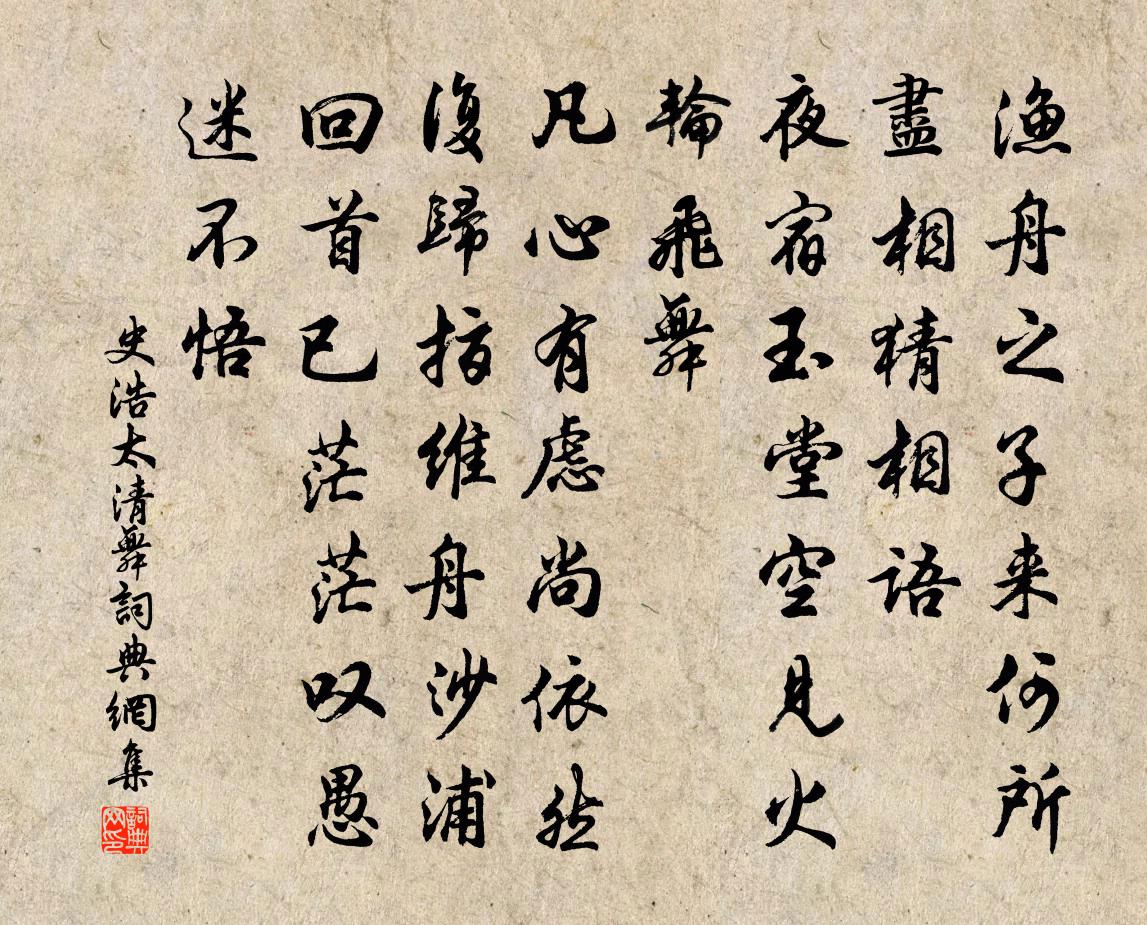 渔舟之子来何所
盡相猜相語
夜宿玉堂空見火
輪飛舞
凡心有慮尚依然
復歸指維舟沙浦
回首已茫茫叹愚
迷不悟
史浩太清舞詞典網集
詞典网印